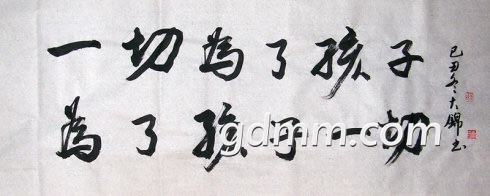 一切為了孩子
為了孩子一切
己丑冬大錦书
gdmm.com